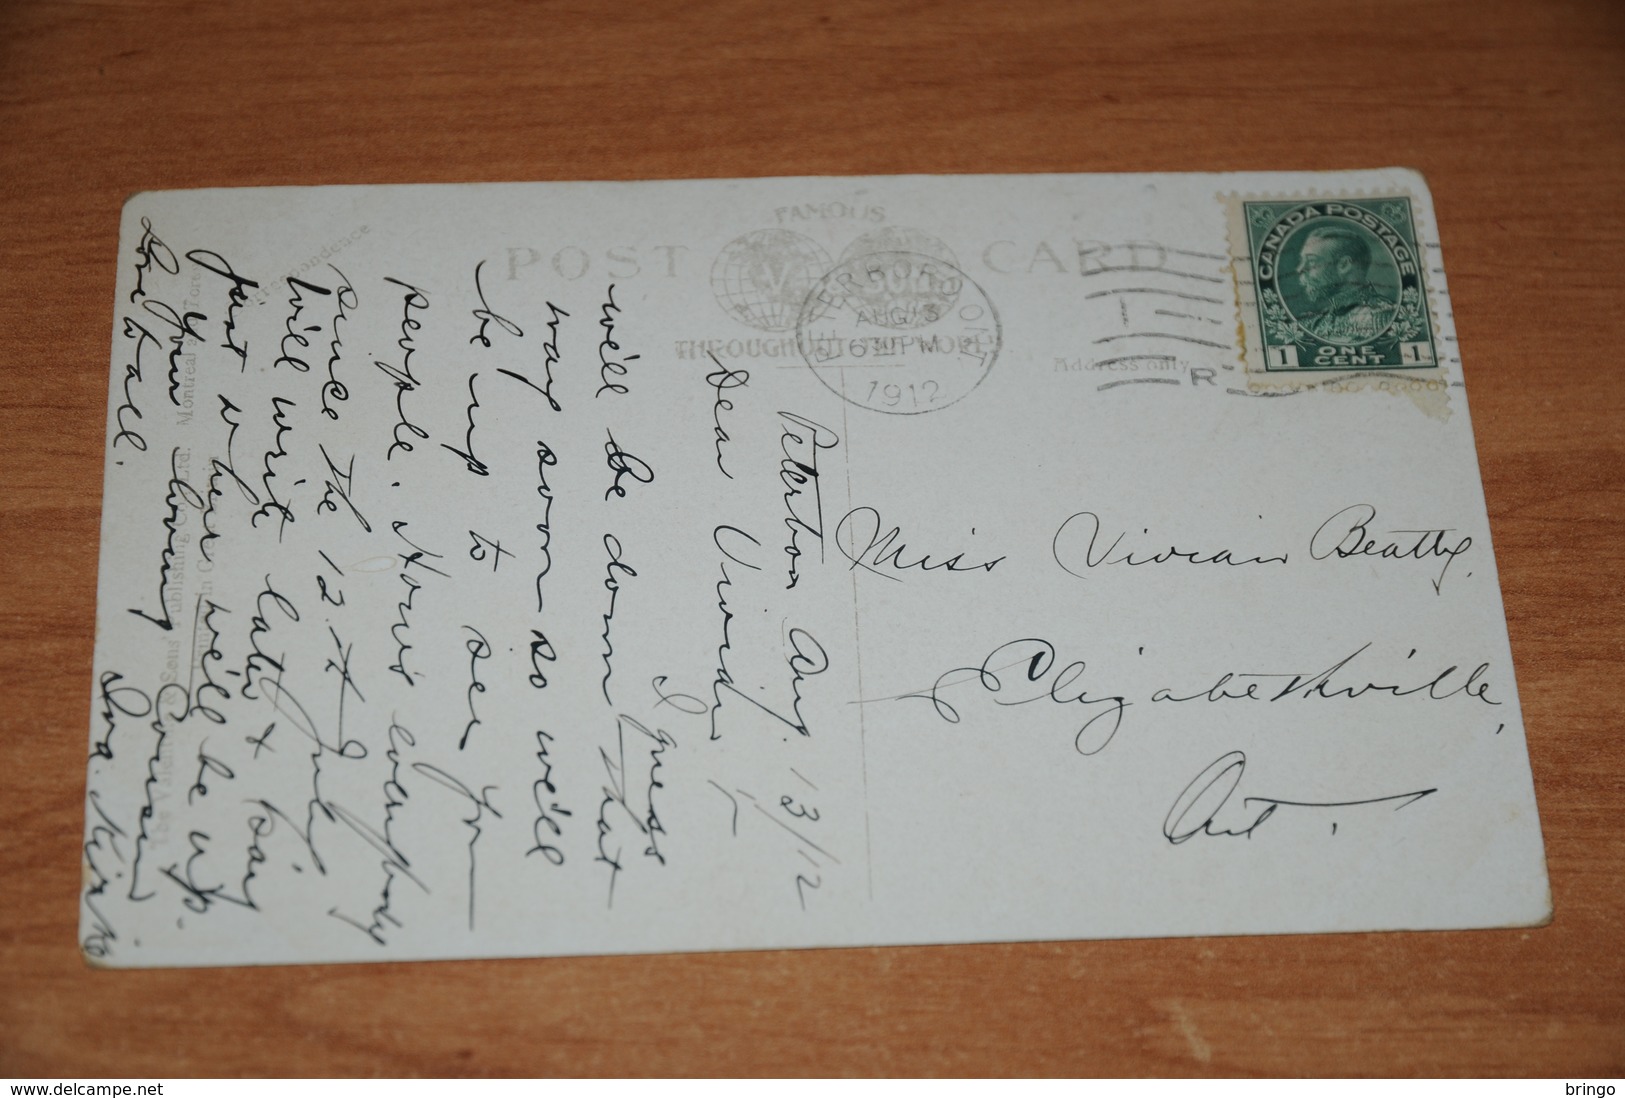 POST CARD
FAMOUS
THROUGHOUT THE WORLD
V
SONS
Address only
Correspondence
PETERBORO ONT
AUG 13
6 30 PM
1912
R
CANADA POSTAGE
1 ONE CENT 1
Miss Vivian Beatty,
Elizabethville,
Ont.
Peterboro Aug. 13/12
Dear Vivian,
I guess
we'll be down that
way soon so we'll
be up to see you
people. How's everybody
since the 12th July
We'll write later & say
just when we'll be up.
Your loving Cousin
Love to all.
Iva.
& Sons Publishing Co. Ltd. Montreal
delcampe.net
bringo